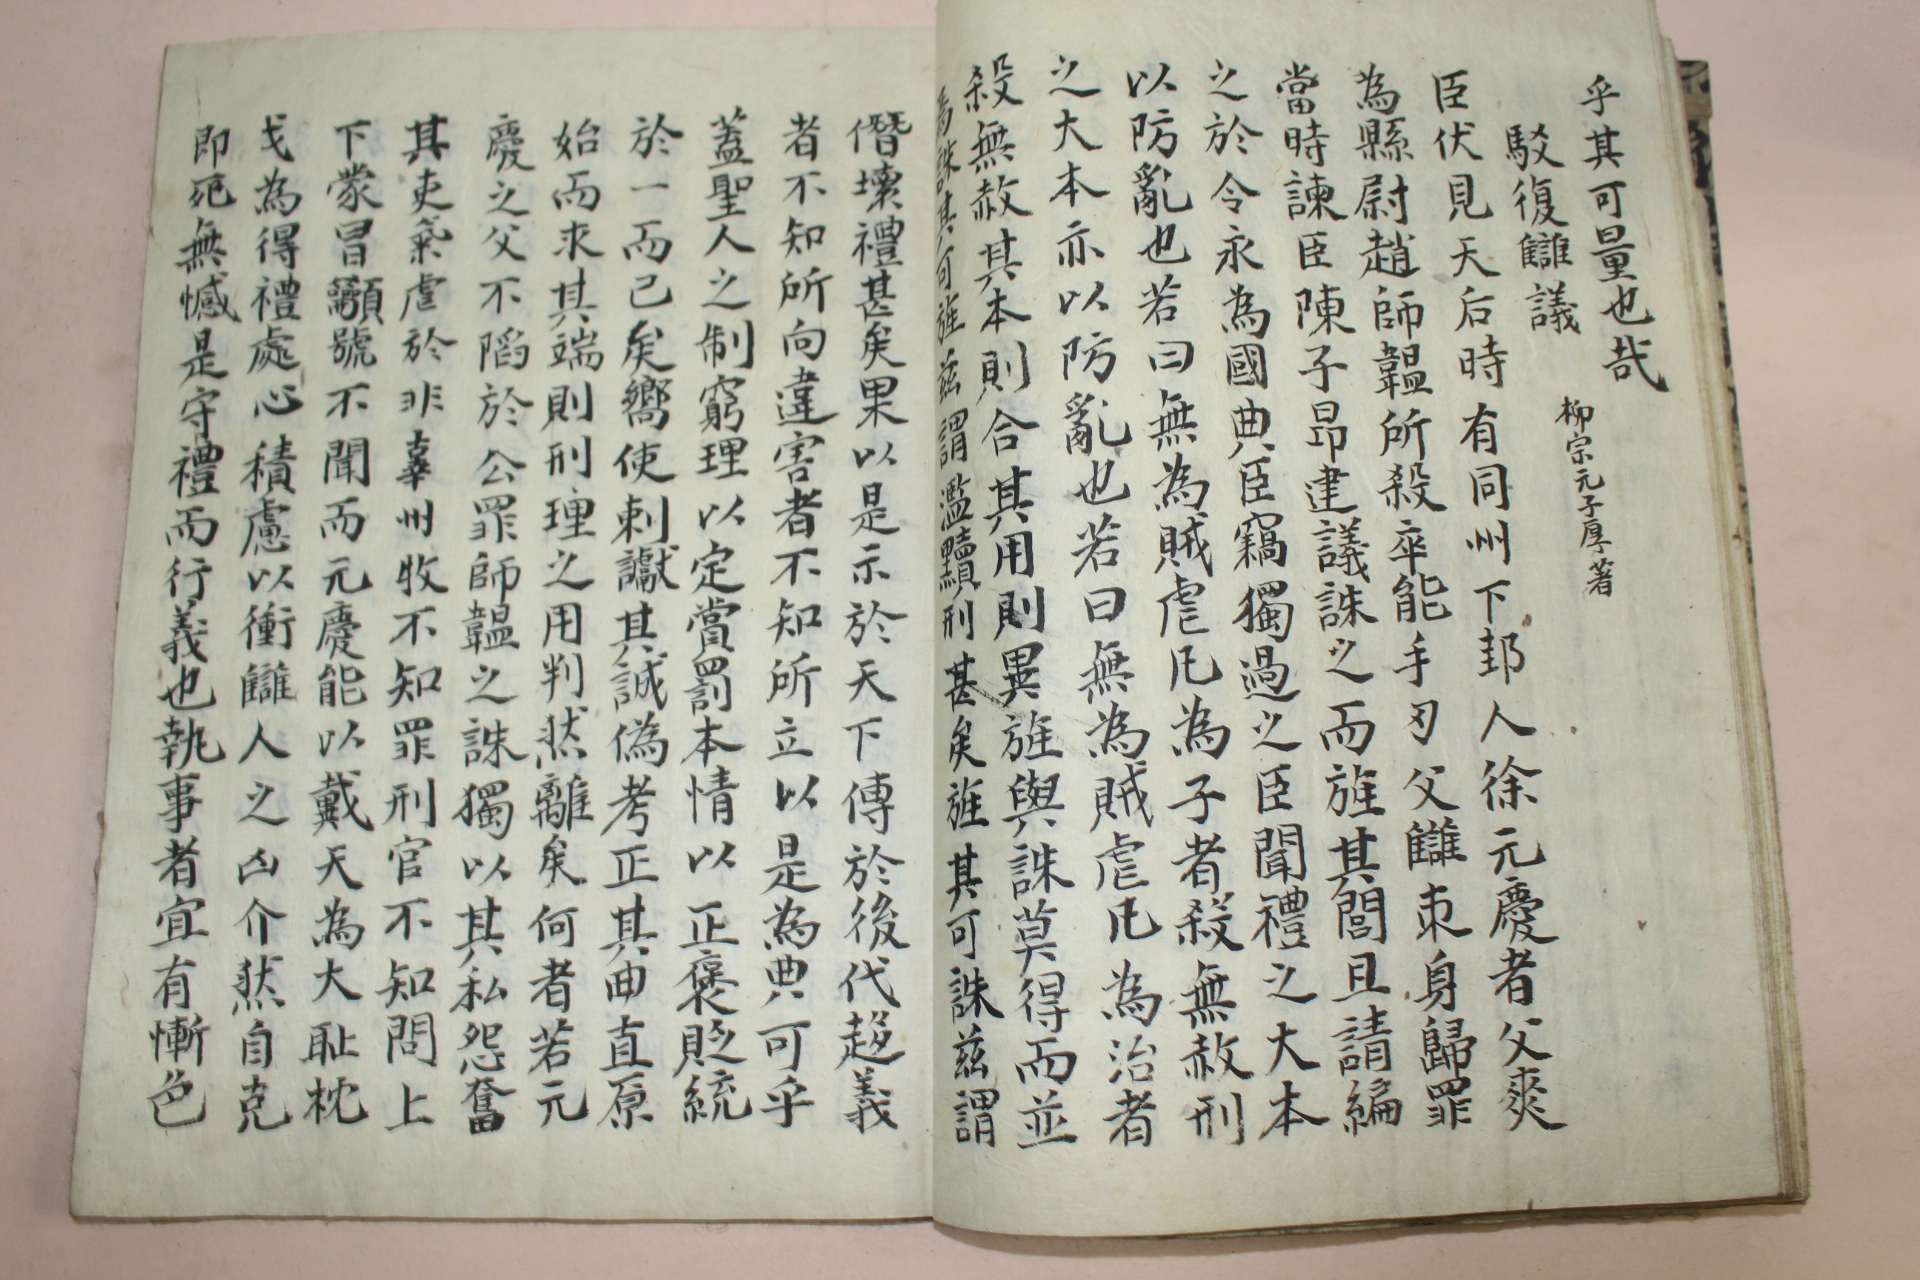 乎其可量也哉
駁復讎議
柳宗元子厚著
臣伏見天后時有同州下邽人徐元慶者父爽
為縣尉趙師韞所殺卒能手刃父讎束身歸罪
當時諫臣陳子昂建議誅之而旌其閭且請編
之於令永為國典臣竊獨過之臣聞禮之大本
以防亂也若曰無為賊虐凡為子者殺無赦刑
之大本亦以防亂也若曰無為賊虐凡為治者
殺無赦其本則合其用則異旌與誅莫得而並
焉誅其可旌茲謂濫黷刑甚矣旌其可誅茲謂
僭壞禮甚矣果以是示於天下傳於後代趍義
者不知所向違害者不知所立以是為典可乎
蓋聖人之制窮理以定賞罰本情以正褒貶統
於一而已矣嚮使刺讞其誠偽考正其曲直原
始而求其端則刑理之用判然離矣何者若元
慶之父不陷於公罪師韞之誅獨以其私怨奮
其吏氣虐於非辜州牧不知罪刑官不知問上
下蒙冒籲號不聞而元慶能以戴天為大恥枕
戈為得禮處心積慮以衝讎人之凶介然自克
即死無憾是守禮而行義也執事者宜有慚色